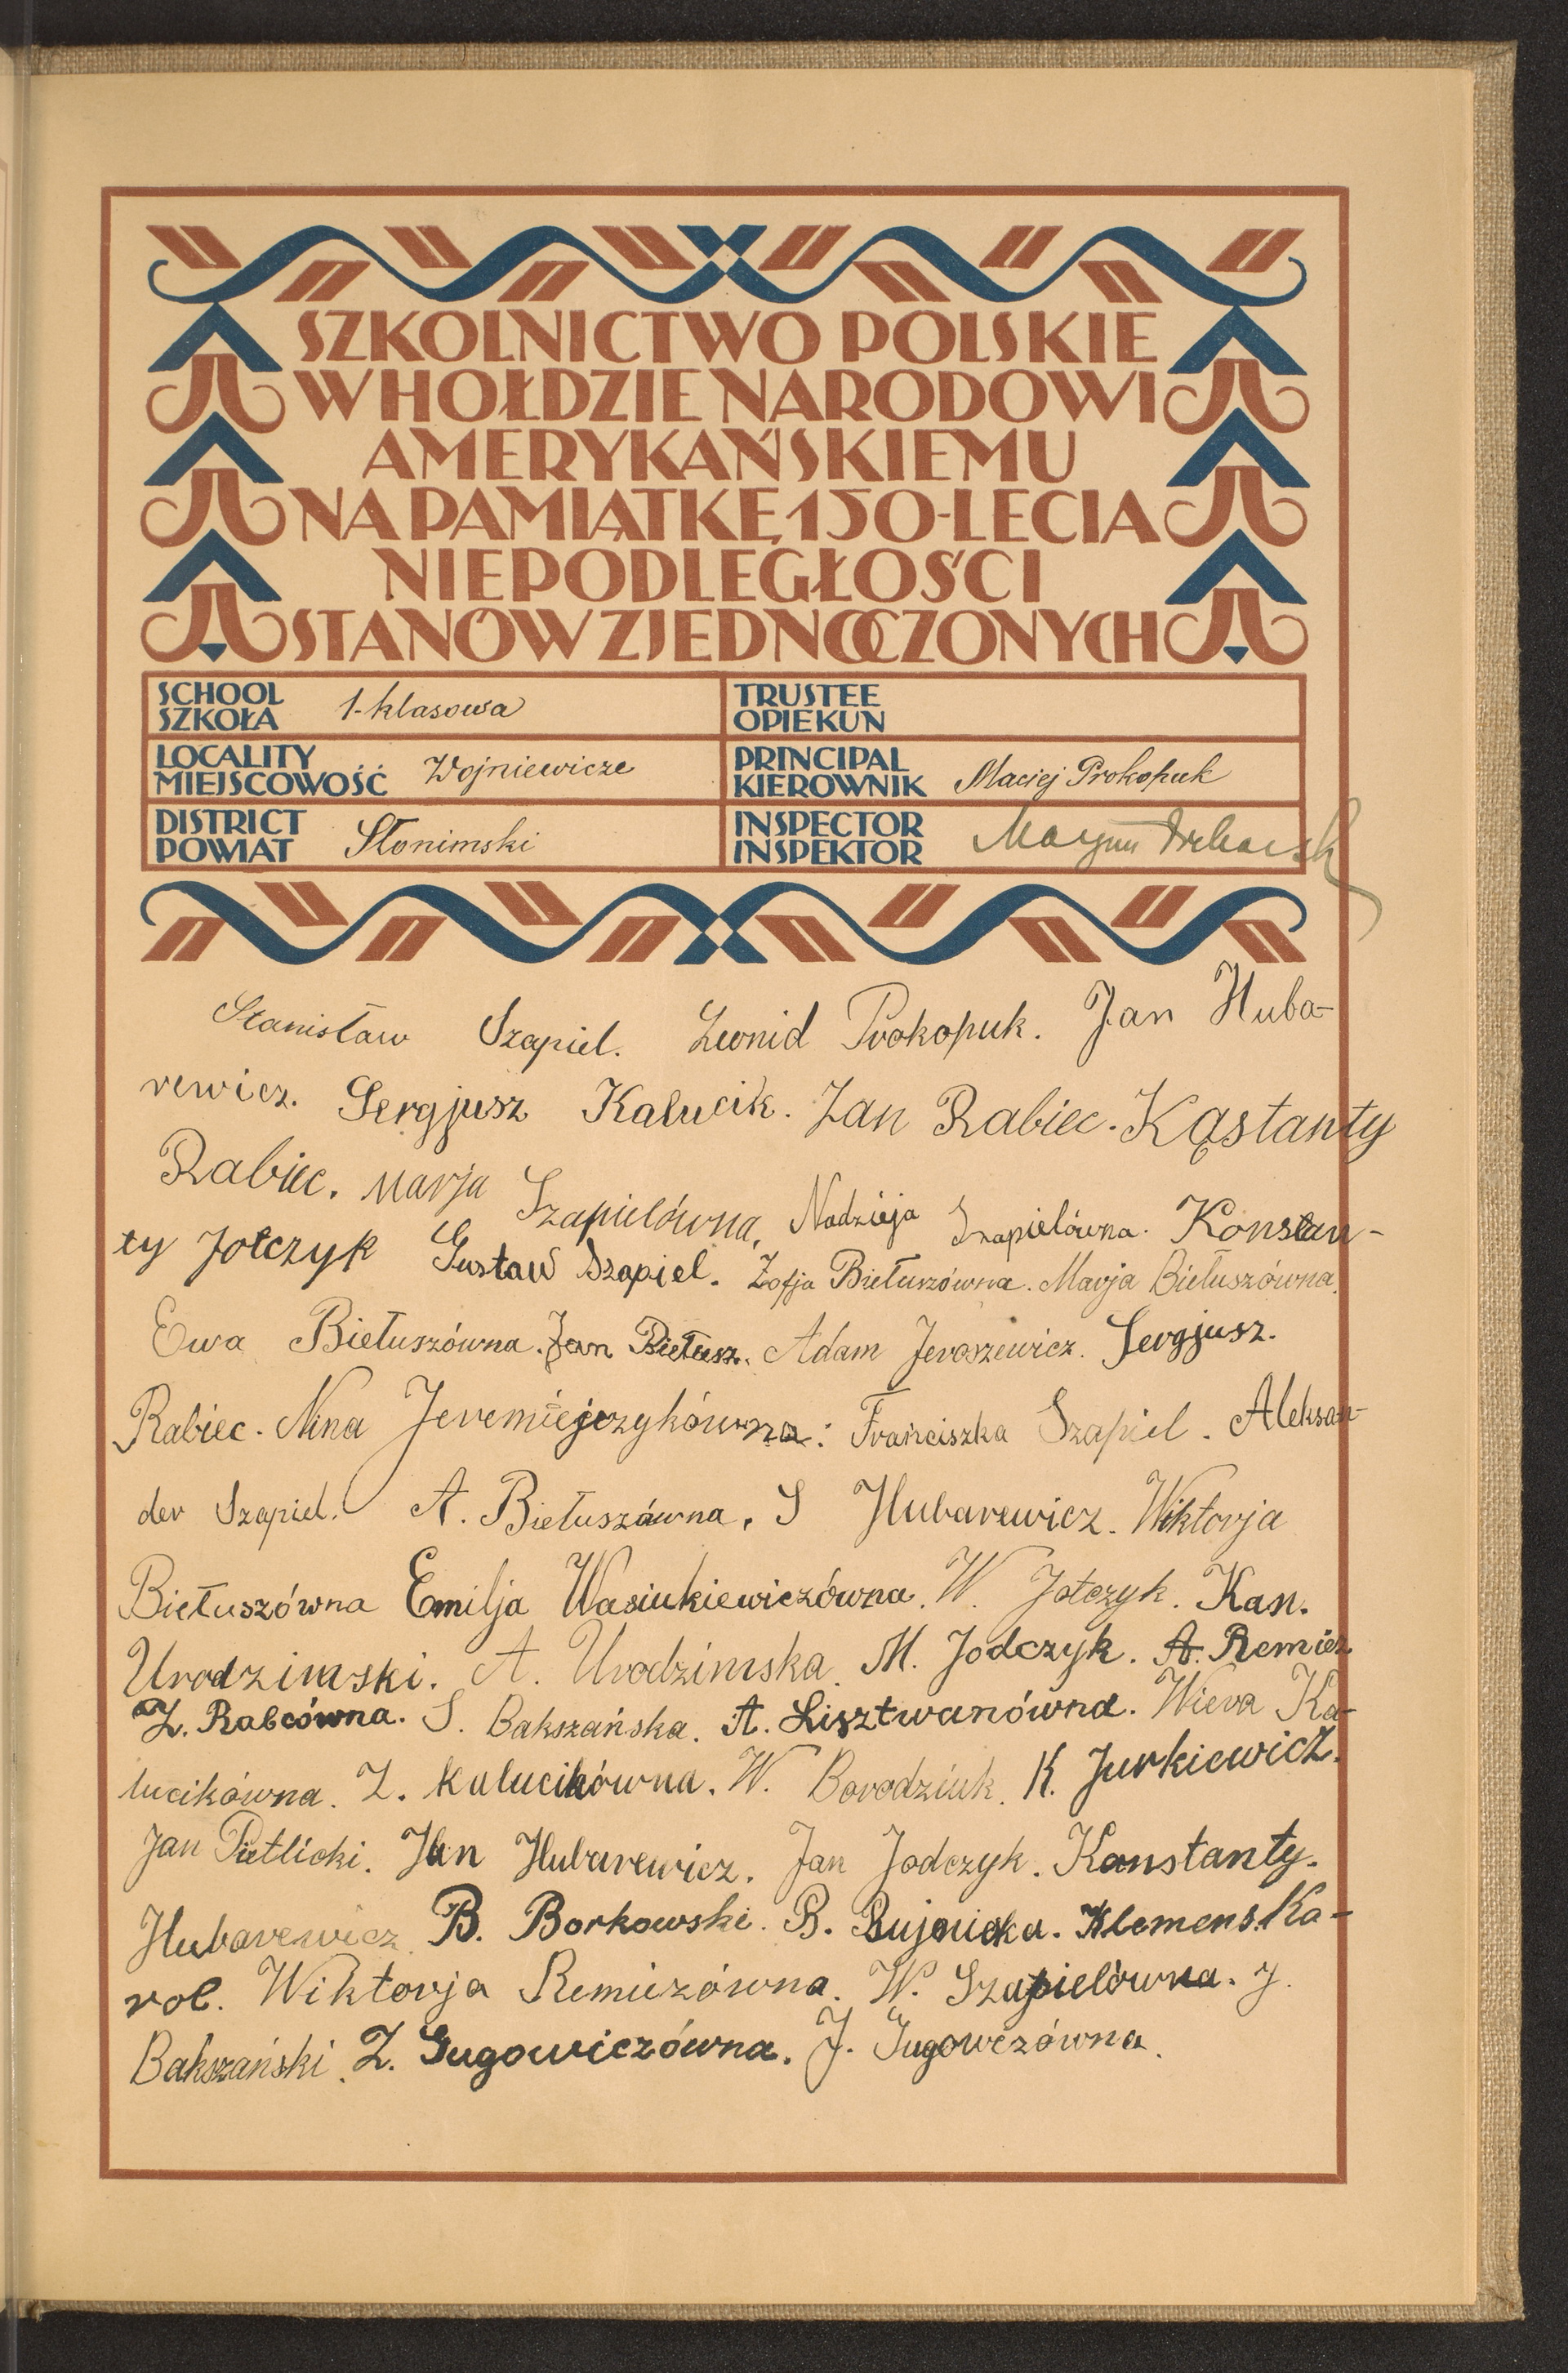 SZKOLNICTWO POLSKIE
W HOŁDZIE NARODOWI
AMERYKAŃSKIEMU
NA PAMIĄTKĘ 150-LECIA
NIEPODLEGŁOŚCI
STANÓW ZJEDNOCZONYCH
SCHOOL
SZKOŁA 1-klasowa
TRUSTEE
OPIEKUN
LOCALITY
MIEJSCOWOŚĆ Wojniewicze
PRINCIPAL
KIEROWNIK Maciej Prokopuk
DISTRICT
POWIAT Słonimski
INSPECTOR
INSPEKTOR
Stanisław Szapiel. Leonid Prokopuk. Jan Huba-
rewicz. Sergjusz Kalucik. Jan Rabiec. Kąstanty
Rabiec. Marja Szapielówna, Nadzieja Szapielówna. Konstan-
ty Jotczyk Gustaw Szapiel. Zofja Biełuszówna. Marja Biełuszówna.
Ewa Biełuszówna. Jan Biełusz. Adam Jeroszewicz. Sergjusz.
Rabiec. Nina Jeremiejczykówna. Franciszka Szapiel. Aleksan-
der Szapiel. A. Biełuszówna. S Hubarewicz. Wiktorja
Biełuszówna Emilja Wasiukiewiczówna. W. Jotczyk. Kan.
Urodzimski. A. Urodzimska. M. Jodczyk. A. Remiez
Z. Rabcówna. S. Bakszańska. A. Lisztwanówna. Wiera Ka-
lucikówna. Z. Kalucikówna. W. Borodziuk. K. Jurkiewicz.
Jan Pietlicki. Jan Hubarewicz. Jan Jodczyk. Konstanty.
Hubarewicz. B. Borkowski. B. Bujnicka. Klemens. Ka-
rol. Wiktorja Remiezówna. W. Szapielówna. J.
Bakszański. Z. Gugowiczówna. J. Gugowczówna.